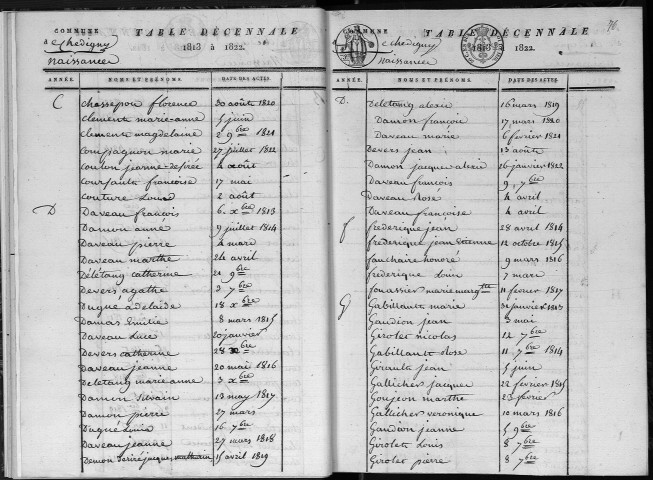 COMMUNE
TABLE DÉCENNALE
de Chedigny
1813 à 1822.
Naissances
ANNÉE. NOMS ET PRÉNOMS. DATE DES ACTES.
C Chassepou florence 30 août 1820
Clement marie-anne 5 juin
Clement magdelaine 2 9bre 1821
Compagnon marie 27 juillet 1822
Couton jeanne-desirée 4 août
Coursault francoise 17 mai
Couture 2 août
D Daveau francois 6 xbre 1813
Damon anne 9 juillet 1814
Daveau pierre 4 mars
Daveau marthe 24 avril
Délétang catherine 21 9bre
Devers agathe 2 7bre
Dugué adelaide 18 xbre
Damas Emilie 8 mars 1815
Daveau Luce 20 janvier
Devers catherine 28 xbre
Daveau jeanne 20 mai 1816
Deletang marie anne 3 xbre
Damon Silvain 13 may 1817
Damon pierre 27 mars
Dugué Louis 16 7bre
Daveau jeanne 29 mars 1818
Demon jacques mathurin 15 avril 1819
76
COMMUNE
TABLE DÉCENNALE
de Chedigny
1813 à 1822.
Naissances
ANNÉE. NOMS ET PRÉNOMS. DATE DES ACTES.
D. Deletang alexis 16 mars 1819
Damon francois 17 mars 1820
Daveau marie 6 fevrier 1821
Devers jean 13 août
Damon jacques alexis 26 janvier 1822
Daveau francois 9 7bre
Daveau Rose 4 avril
Daveau francoise 4 avril
f frederique jean 28 avril 1814
frederique jean Etienne 12 octobre 1815
fauchaire honoré 9 mars 1816
frederique Louis 7 mars
fouassier marie margte 11 fevrier 1817
G Gabillault marie 31 janvier 1813
Gaudion jean 3 mai
Girolet nicolas 12 7bre
Gabillault Rose 11 7bre 1814
Girault jean 5 juin
Gallicher jacques 22 fevrier 1815
Goujeon marthe 23 fevrier
Gallicher veronique 10 mars 1816
Gaudion jeanne 5 9bre
Girolet Louis 8 7bre
Girolet pierre 8 7bre